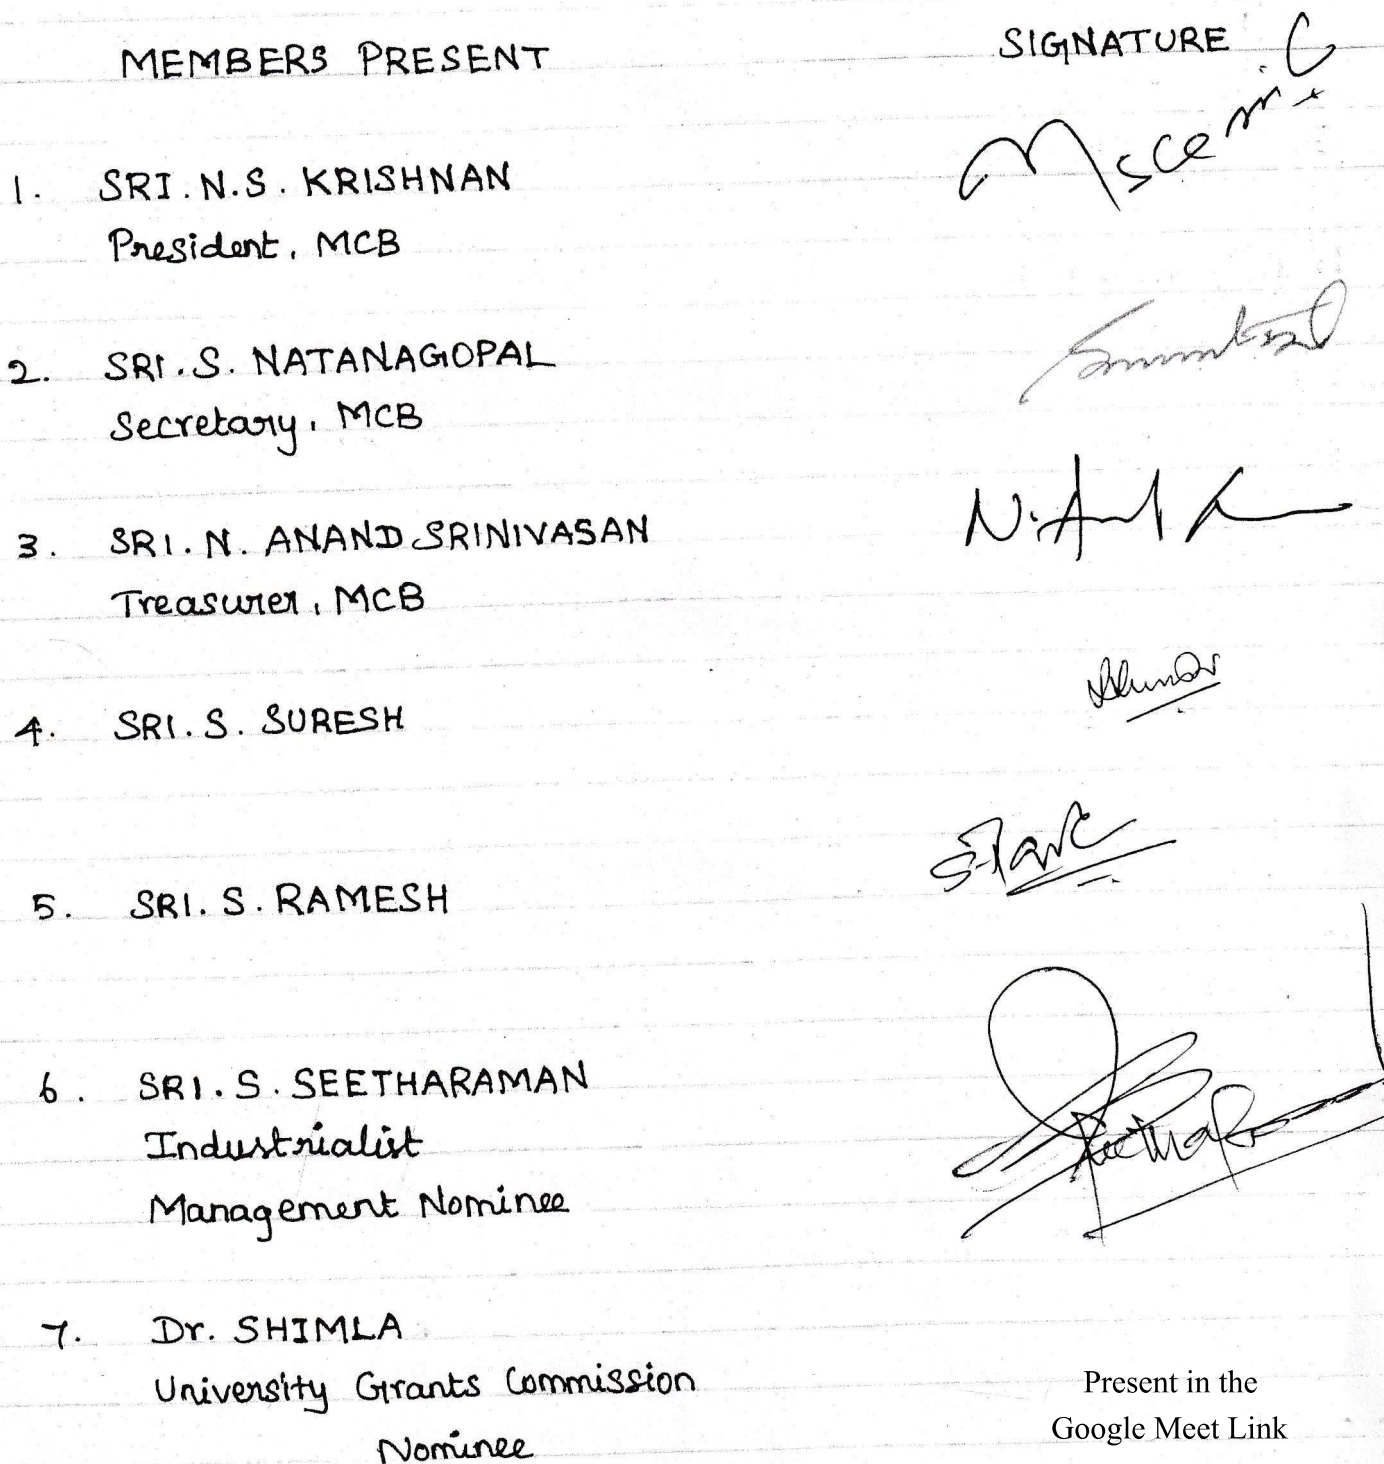 MEMBERS PRESENT SIGNATURE
1. SRI. N.S. KRISHNAN
President, MCB
2. SRI. S. NATANAGOPAL
Secretary, MCB
3. SRI. N. ANAND SRINIVASAN
Treasurer, MCB
4. SRI. S. SURESH
5. SRI. S. RAMESH
6. SRI. S. SEETHARAMAN
Industrialist
Management Nominee
7. Dr. SHIMLA
University Grants Commission
Nominee
Present in the
Google Meet Link